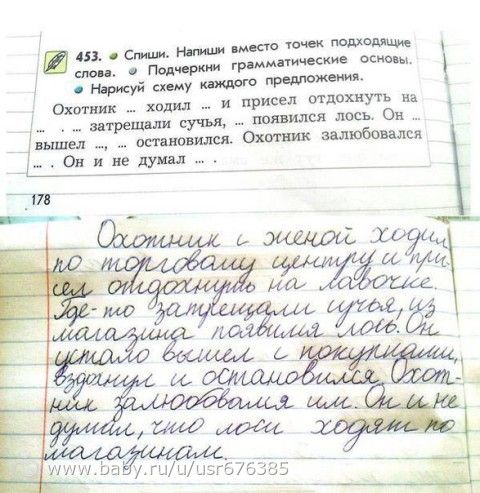 453. Спиши. Напиши вместо точек подходящие
слова. Подчеркни грамматические основы.
Нарисуй схему каждого предложения.
Охотник ... ходил ... и присел отдохнуть на
... . ... затрещали сучья, ... появился лось. Он ...
вышел ..., ... остановился. Охотник залюбовался
... . Он и не думал ... .
178
Охотник с женой ходил
по торговому центру и при-
сел отдохнуть на лавочке.
Где-то затрещали сучья, из
магазина появился лось. Он
устало вышел с покупками,
вздохнул и остановился. Охот-
ник залюбовался им. Он и не
думал, что лоси ходят по
магазинам.
www.baby.ru/u/usr676385